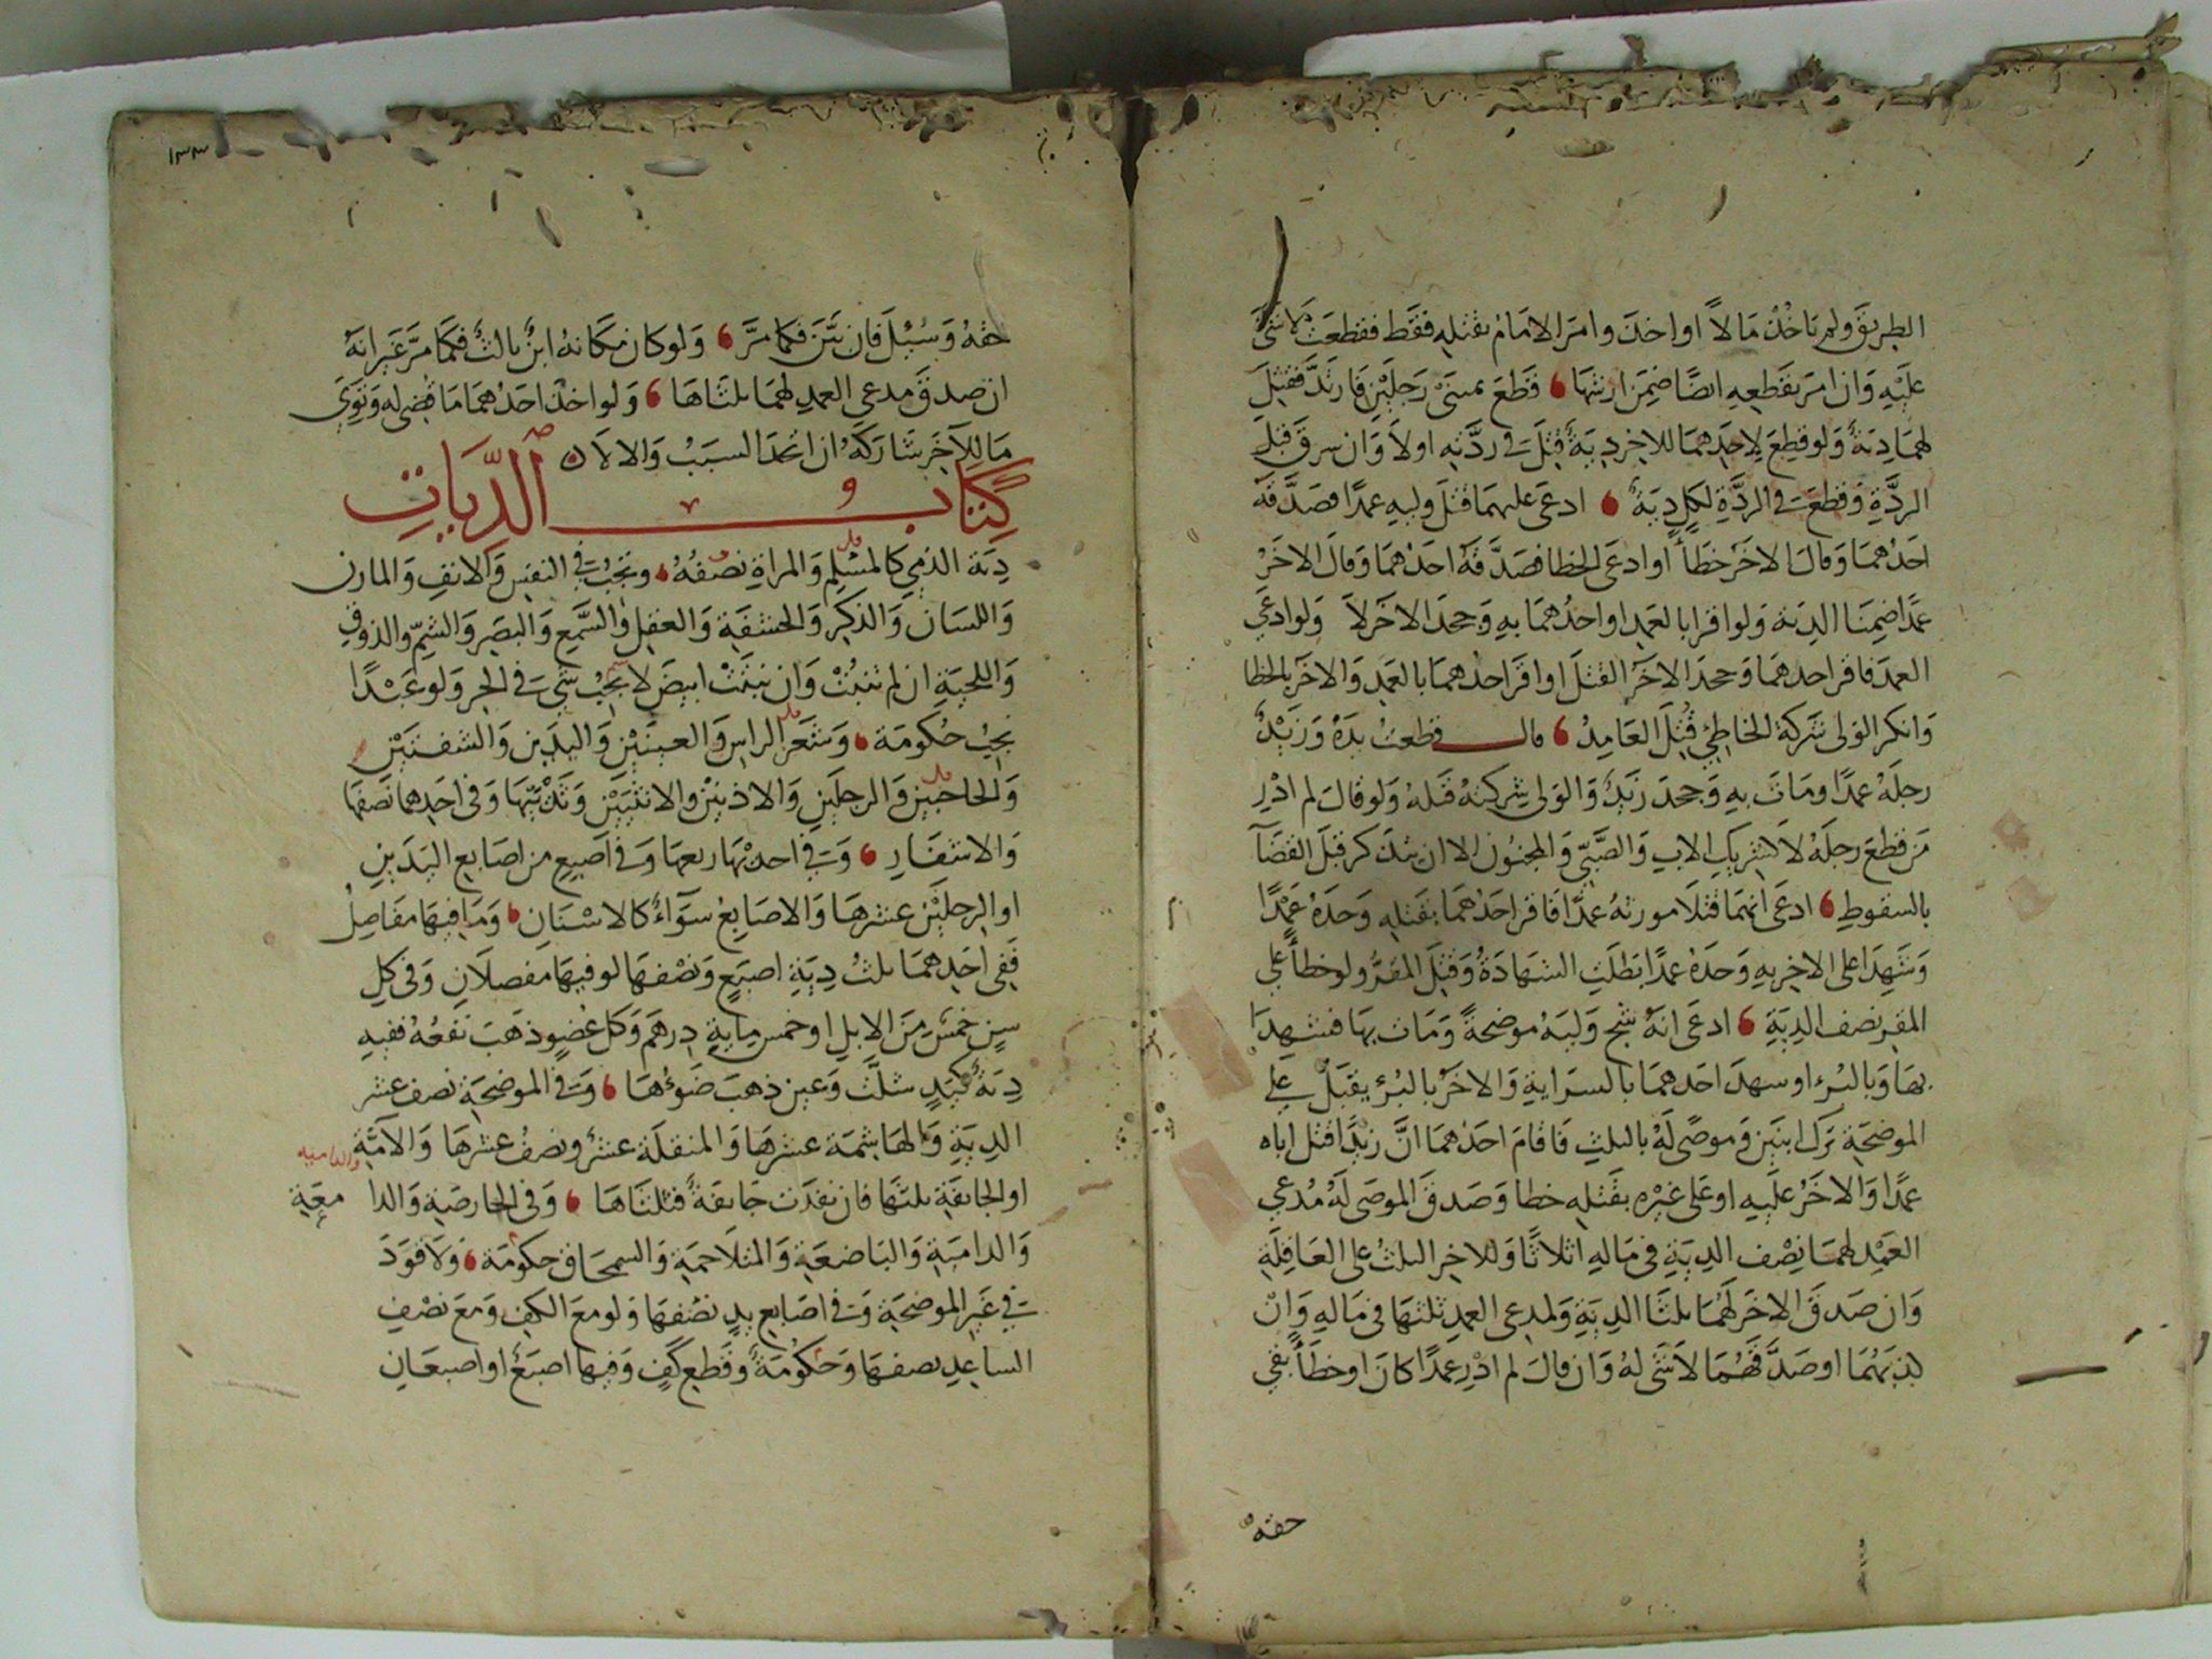 الطريق ولم ياخذ مالا او اخذ وامر الامام بقتله فقط فقطعت لا شئ
عليه وان امر بقطعه ايضا ضمن ارشها قطع يمنى رجلين فارتد فقتل
لهما دية ولو قطع لاحدهما للاخر دية قتل في ردته اولا وان سرق قبل
الردة وقطعت في الردة لكل دية ادعى عليهما قتل وليه عمدا فصدقه
احدهما وقال الاخر خطأ او ادعى الخطا فصدقه احدهما وقال الاخر
عمدا ضمنا الدية ولو اقرا بالعمد او احدهما به وجحد الاخر لا ولو ادعى
العمد فاقر احدهما وجحد الاخر القتل او اقر احدهما بالعمد والاخر بالخطا
وانكر الولى شركة الخاطئ قتل العامد قال قطعت يده وزيد
رجله عمدا ومات به وجحد زيد والولى شركته قتله ولو قال لم ادر
من قطع رجله لا كشريك الاب والصبي والمجنون الا ان يتذكر قبل القضاء
بالسقوط ادعى انهما قتلا مورثه عمدا فاقر احدهما بقتله وحده عمدا
وشهدا على الاخر به وحده عمدا بطلت الشهادة وقتل المقر ولو خطأ على
المقر نصف الدية ادعى انه شج وليه موضحة ومات بها فشهدا
بها وبالبرء او شهد احدهما بالسراية والاخر بالبرء يقبل على
الموضحة ترك ابنين وموصى له بالثلث فاقام احدهما ان زيدا قتل اباه
عمدا والاخر عليه او على غيره بقتله خطا وصدق الموصى له مدعي
العمد لهما نصف الدية في ماله اثلاثا وللاخر الثلث على العاقلة
وان صدق الاخر لهما ثلثا الدية ولمدعى العمد ثلثها في ماله وان
كذبهما او صدقهما لا شئ له وان قال لم ادر عمدا كان او خطأ بقي
حقه
١٣٣
حقه وسئل فان بين فكما مر ولو كان مكانه ابن ثالث فكما مر غير انه
ان صدق مدعى العمد لهما ثلثاها ولو اخذ احدهما ما قضى له وتوى
ما للآخر شاركه ان اتحد السبب والا لا
كتاب الديات
دية الذمي كالمسلم والمراة نصفه وتجب في النفس والانف والمارن
واللسان والذكر والحشفة والعقل والسمع والبصر والشم والذوق
واللحية ان لم تنبت وان نبتت ابيض لا يجب شئ في الحر ولو عبدا
تجب حكومة وشعر الراس والعينين واليدين والشفتين
والحاجبين والرجلين والاذنين والانثيين وثدييها وفي احدهما نصفها
والاشفار وفي احدها ربعها وفي اصبع من اصابع اليدين
او الرجلين عشرها والاصابع سواء كالاسنان وما فيها مفاصل
ففي احدهما ثلث دية اصبع ونصفها لو فيها مفصلان وفي كل
سن خمس من الابل او خمس ماية درهم وكل عضو ذهب نفعه ففيه
دية كيد شلت وعين ذهب ضوءها وفي الموضحة نصف عشر
الدية والهاشمة عشرها والمنقلة عشر ونصف عشرها والآمة
او الجائفة ثلثها فان نفذت جائفة فثلثاها وفي الحارصة والدا معة
والدامية والباضعة والمتلاحمة والسمحاق حكومة ولا قود
في غير الموضحة وفي اصابع يد نصفها ولو مع الكف ومع نصف
الساعد نصفها وحكومة وقطع كف وفيها اصبع او اصبعان